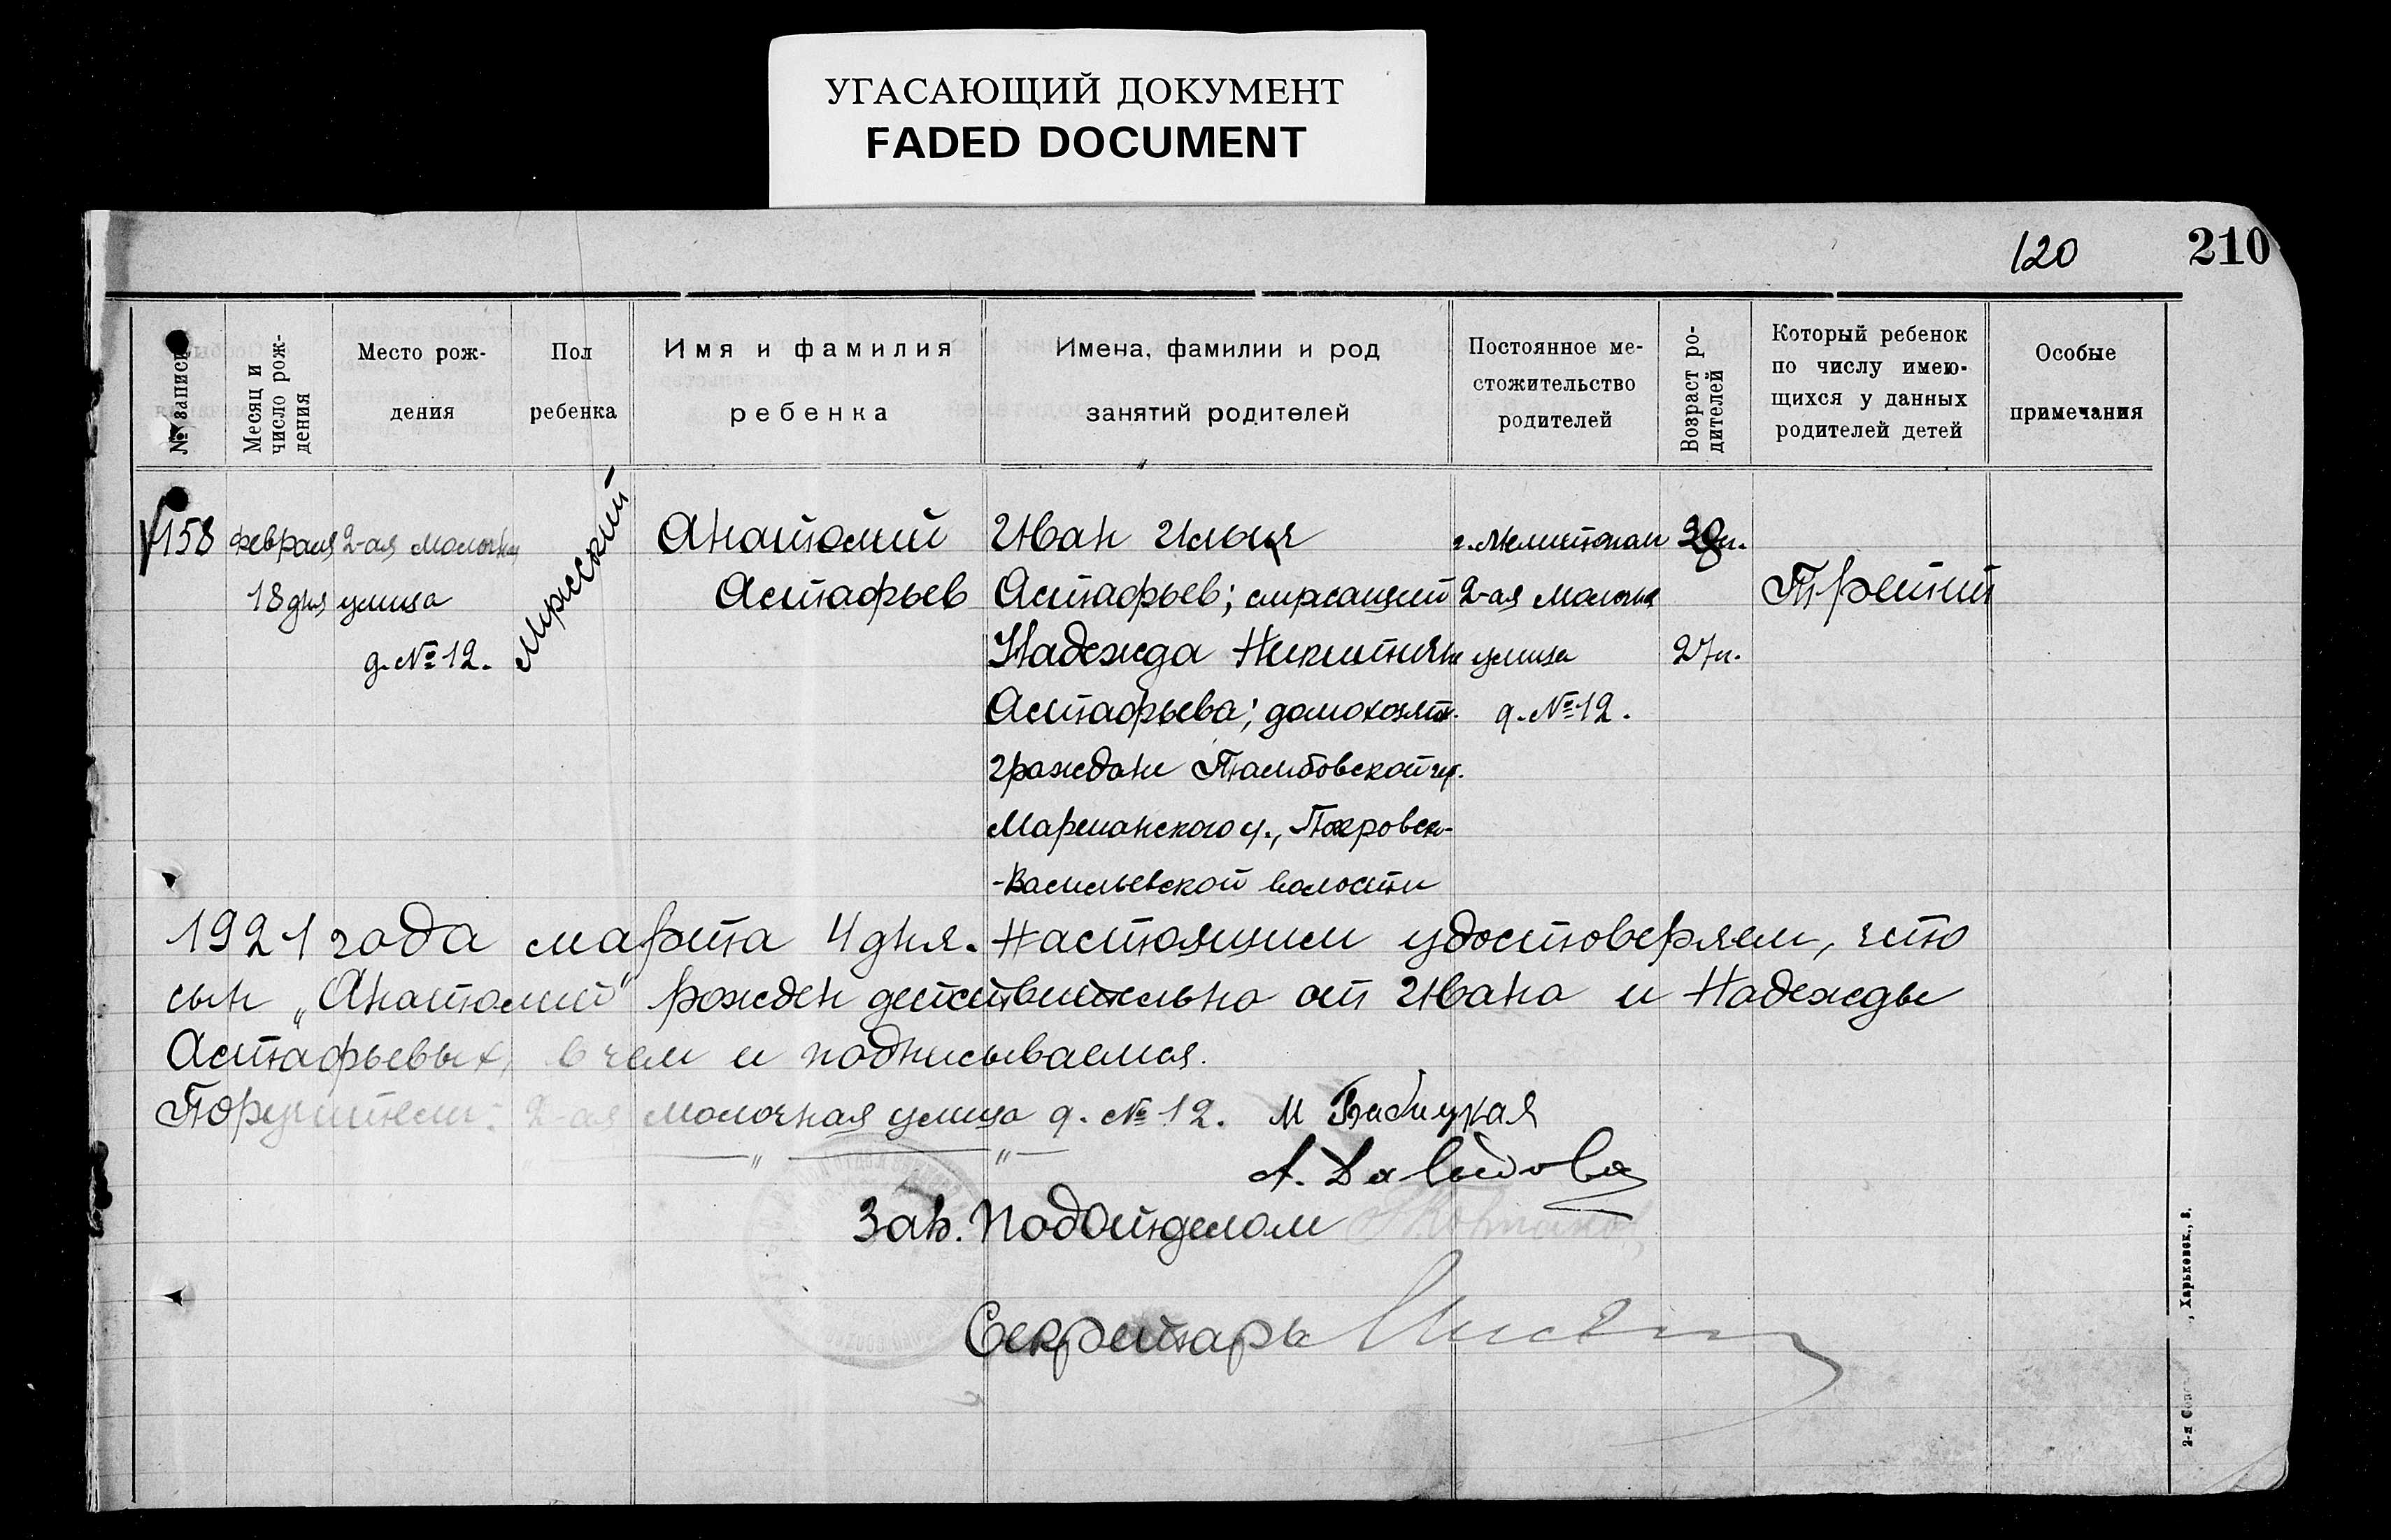 УГАСАЮЩИЙ ДОКУМЕНТ
FADED DOCUMENT
120
210
№ записи
Месяц и
число рож-
дения
Место рож-
дения
Пол
ребенка
Имя и фамилия
ребенка
Имена, фамилии и род
занятий родителей
Постоянное ме-
стожительство
родителей
Возраст ро-
дителей
Который ребенок
по числу имею-
щихся у данных
родителей детей
Особые
примечания
158
февраля
18 дня
2-ая Молочн
улица
д. № 12.
Мужской
Анатолий
Астафьев
Иван Ильич
Астафьев; служащий
Надежда Никитичн
Астафьева; домохозяй.
граждане Тамбовской гу.
Маршанского у., Покровск-
-Васильевской волости
г. Мелитополь
2-ая Молочн
улица
д. № 12.
27 л.
Третий
1921 года марта 4 дня. Настоящим удостоверяем, что
сын „Анатолий" рожден действительно от Ивана и Надежды
Астафьевых, в чем и подписываемся.
Поручители: 2-ая Молочная улица д. № 12. М Бабицкая
— " — " — А. Давыдова
Зав. Подотделом
Секретарь
, Харьковск., 8.